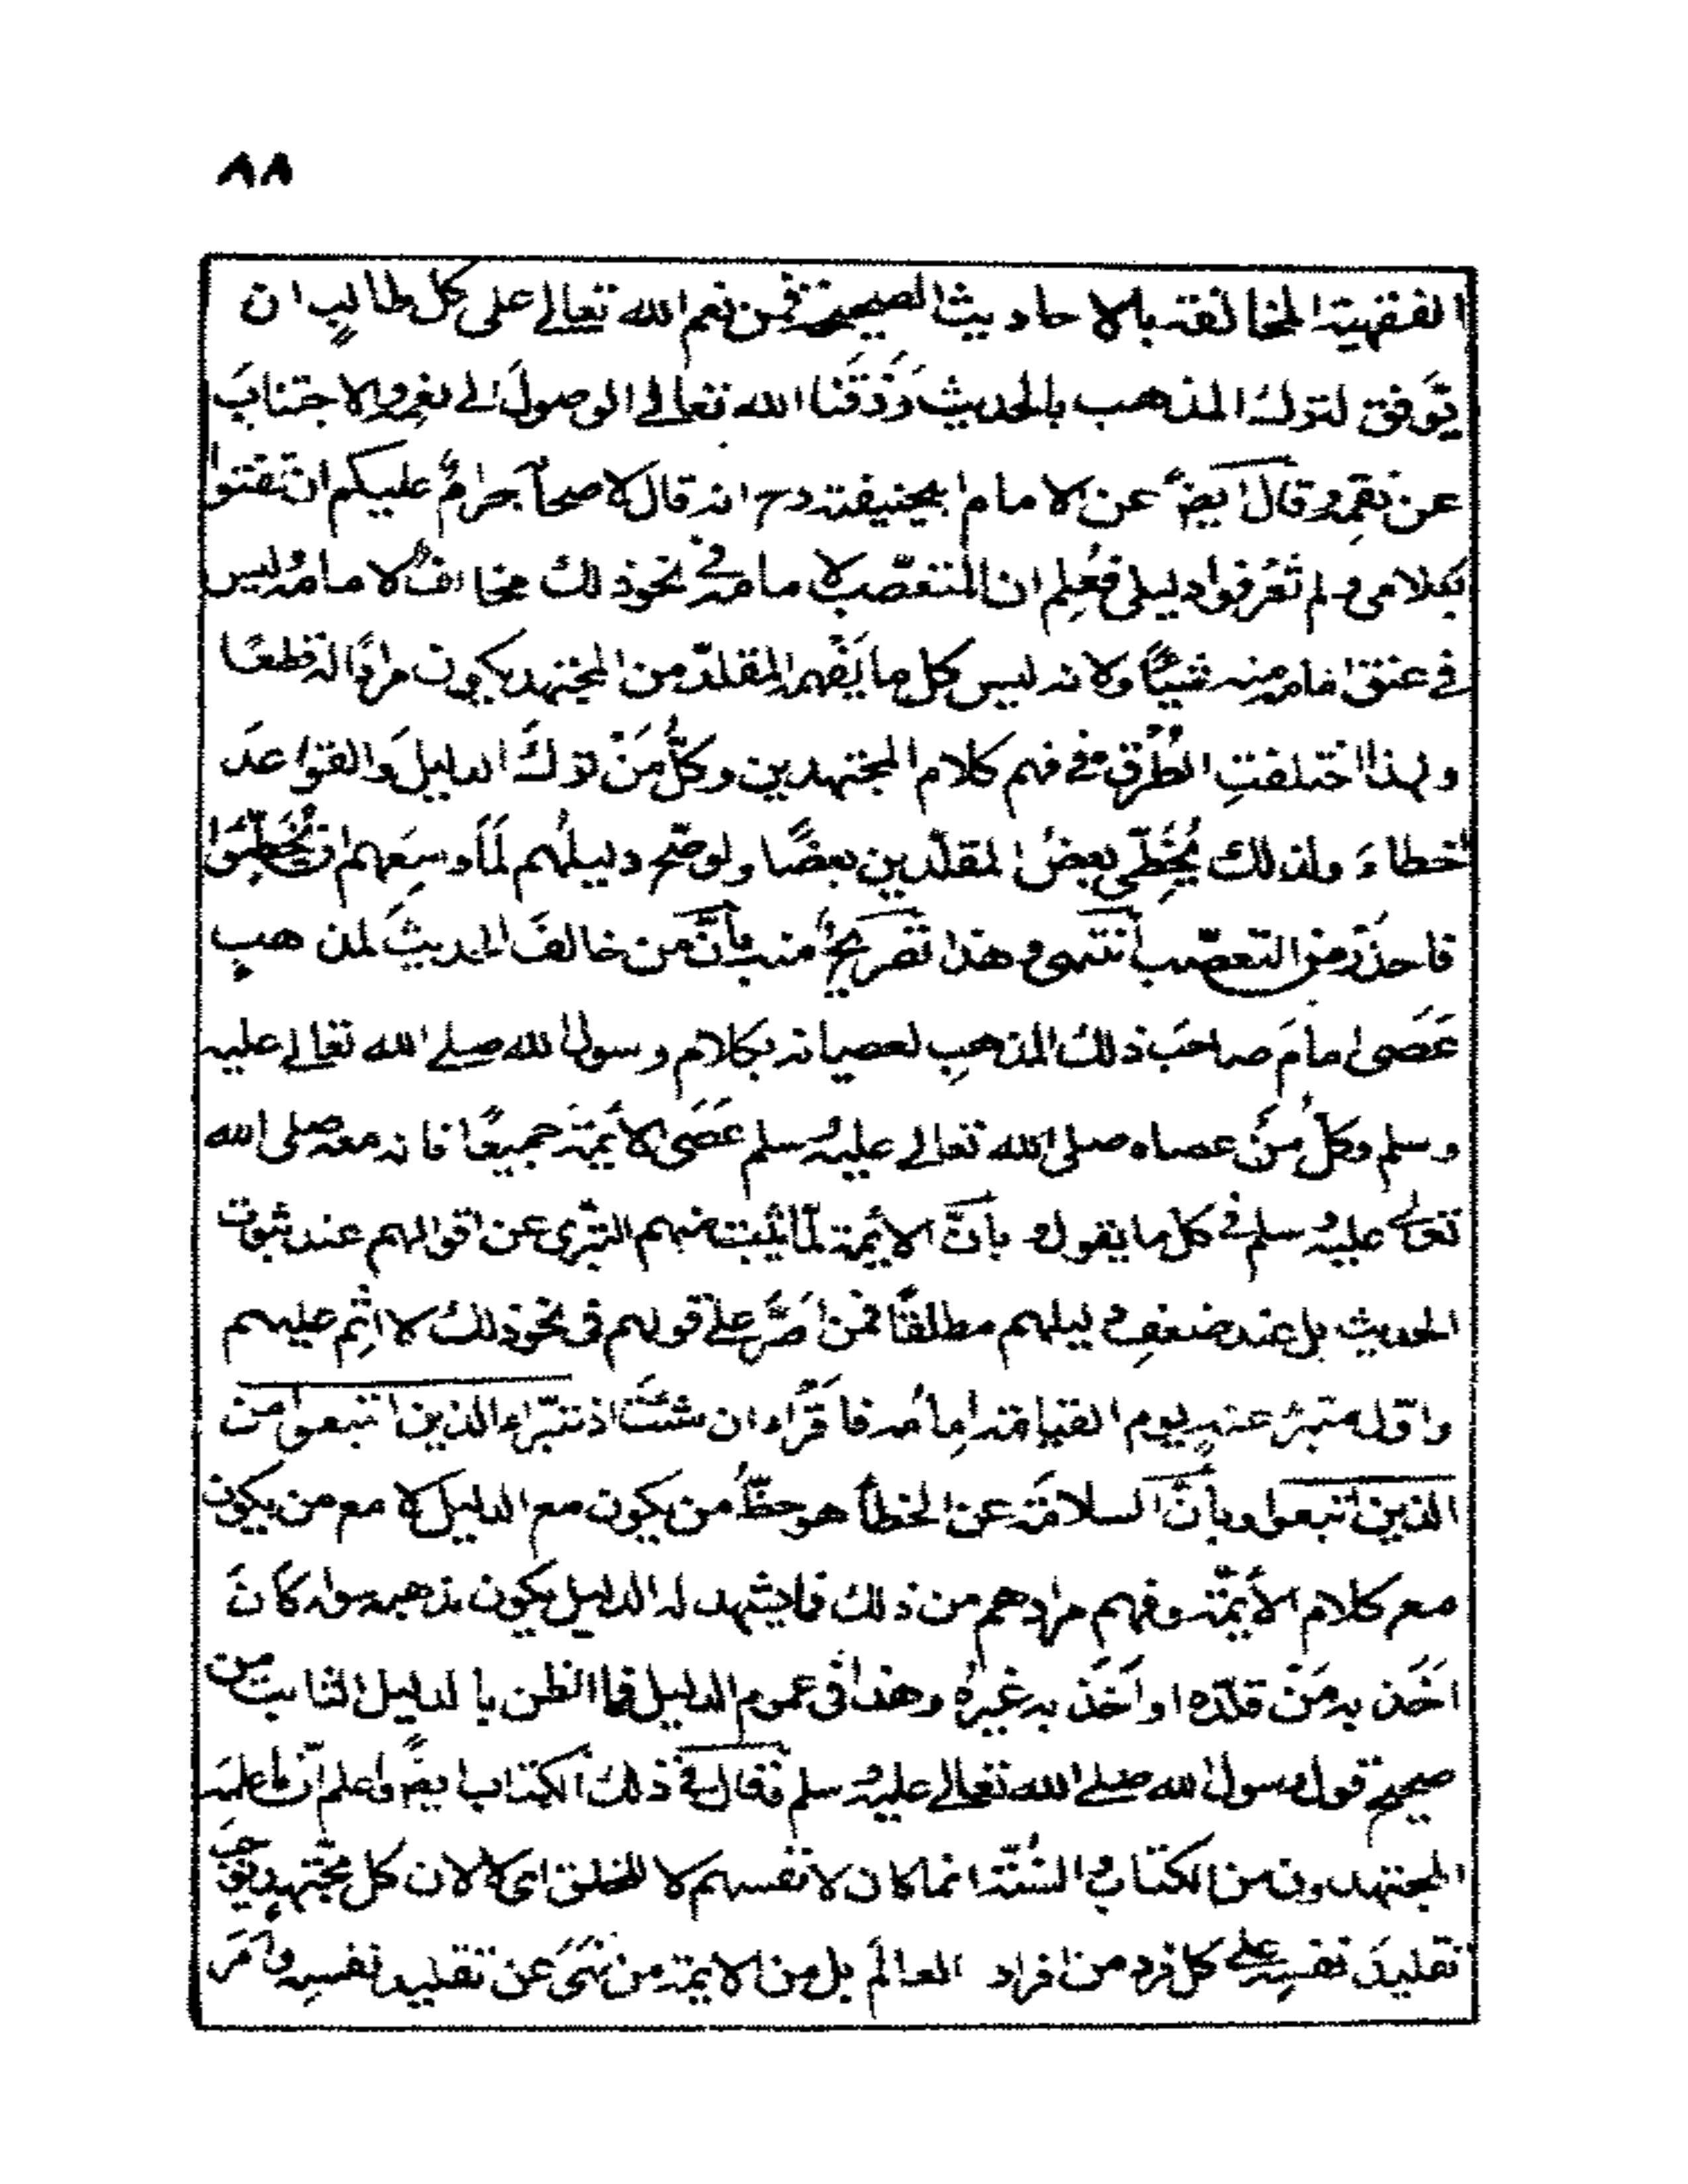 ٨٨
الفقهية المخالفة بالاحاديث الصحيحة فمن نعم الله تعالى على كل طالبٍ ان
يُّوَفق لترك المذهب بالحديث رَزَقَنا الله تعالى الوصولَ الى نعمه والاجتنابَ
عن نقمه وقال ايضًا عن الامام ابيحنيفة رح انه قال لاصحابه حرامٌ عليكم ان تفتوا
بكلامى ولم تَعْرفوا دليلى فعُلِم ان المتعصّب لامامه فى نحو ذلك مخالفٌ لامامه وليس
فى عنق امامه منه شيئًا ولانه ليس كل ما يَفْهم المقلدّ من المجتهد يكون مرادًا له قطعًا
ولهذا اختلفتِ الطُرُق فى فهم كلام المجتهدين وكلُّ مَنْ ترك الدليلَ والقواعدَ
اخطاءَ ولذلك يُخَطِّى بعضُ المقلّدين بعضًا ولو صَحّ دليلُهم لَمَا وسِعَهم ان يُّخَطِّئوا
فاحذَرْ من التعصّب انتهى وهذا تصريحٌ منه بأنَّ من خالفَ الحديثَ لمذهبٍ
عَصَى امامَ صاحبَ ذلك المذهبِ لعصيانه بكلام رسول الله صلے الله تعالے عليه
وسلم وكلُّ مَنْ عصاه صلى الله تعالے عليه وسلم عَصَى الأيمّةَ جميعًا فانه معه صلى الله
تعالے عليه وسلم فى كل ما يقول و بأنَّ الايمّة لمّا ثبت منهم التبرّى عن اقوالهم عند ثبوت
الحديث بل عند ضعفِ دليلهم مطلقًا فمن اَصَرَّ علے قولهم فى نحو ذلك لا اثِم عليهم
واوّل متبرّء عنه يوم القيامة اِمامُه فاقْرَاء ان شئتَ اذ تبّراء الذين اتبعوا من
الذين اتبعوا وبأنَّ السلامَة عن الخطأ هو حظُّ من يكون مع الدليل لا مع من يكون
مع كلام الأيمّة وفهم مرادهم من ذلك فما يشهد له الدليل يكون مذهبه سواء كانَ
اَخَذ به مَنْ قلّده او اَخَذ به غيرُه وهذا فى عموم الدليل فما الظن بالدليل الثابت من
صحيح قول رسول الله صلے الله تعالے عليه وسلم وقال فى ذلك الكتاب ايضًا واعلم انّ ما عليه
المجتهدون من الكتاب والسُنّة انما كان لانفسهم لا للخلق اى لا لان كل مجتهدٍ يُوجبَ
تقليدَ نفسِه علے كل فرد من افراد العالَم بل من الايمة من نَهَى عن تقليد نفسِه وأمَرَ